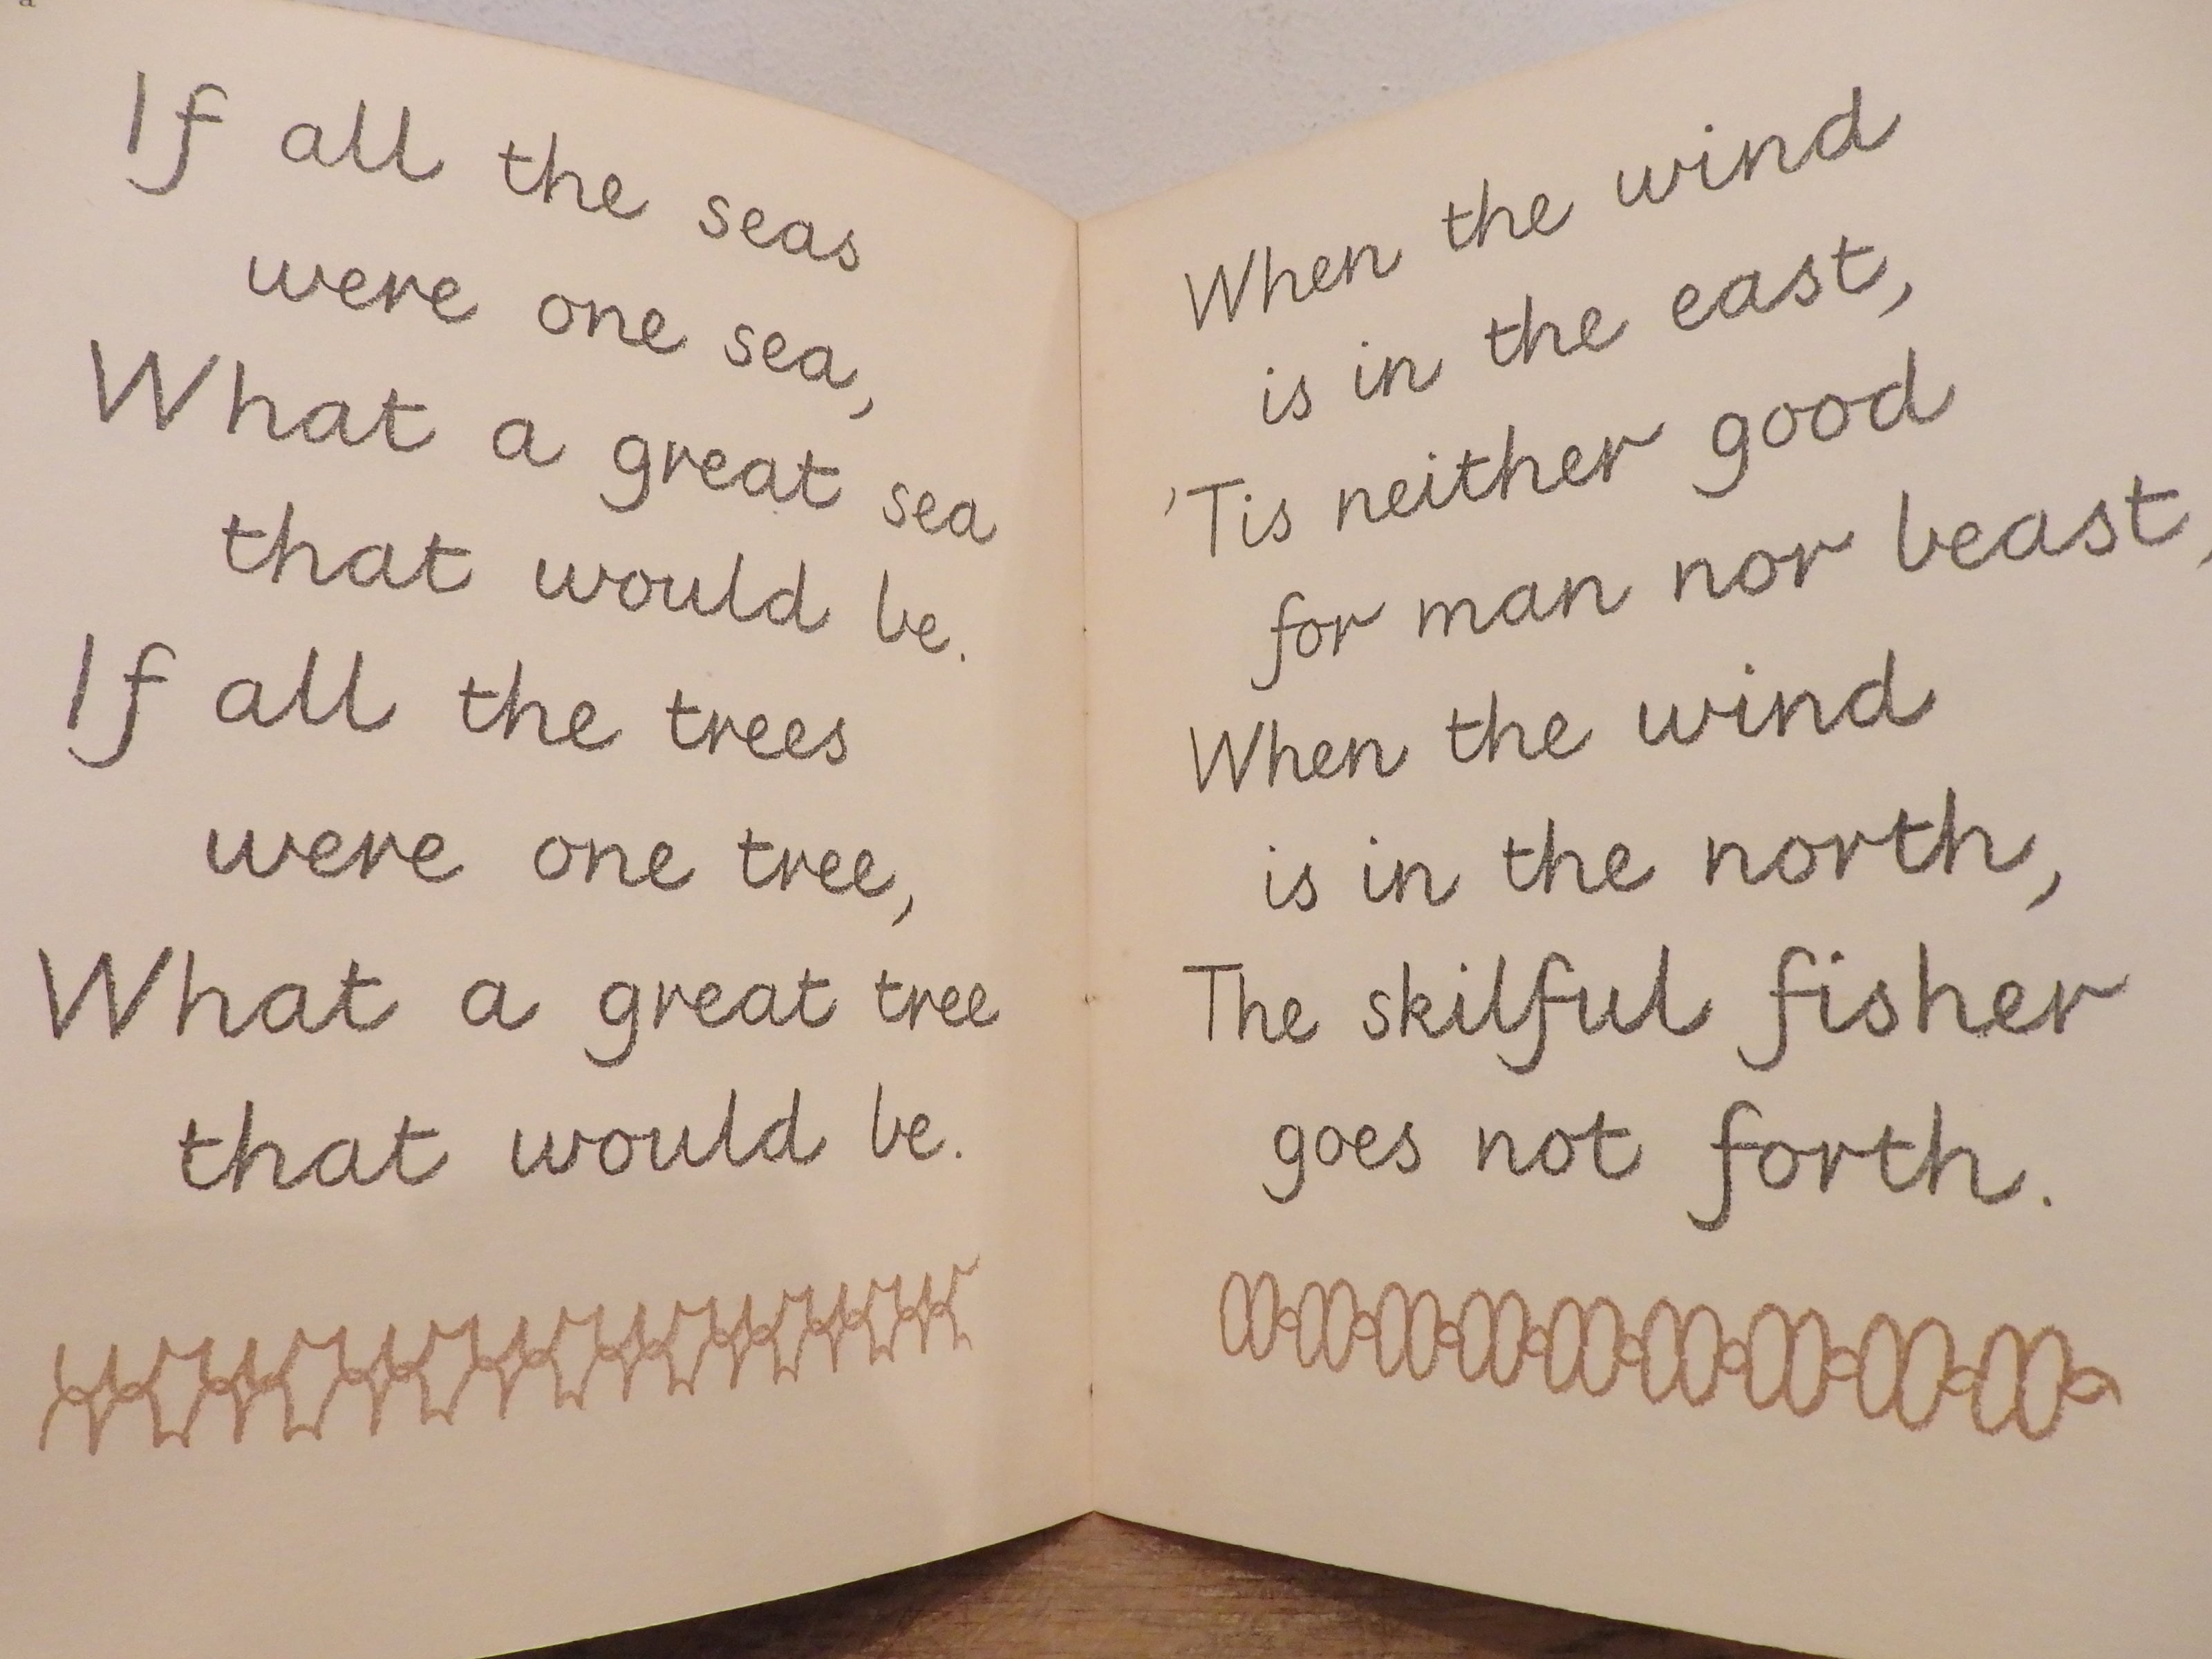 If all the seas
were one sea,
What a great sea
that would be.
If all the trees
were one tree,
What a great tree
that would be.
When the wind
is in the east,
'Tis neither good
for man nor beast,
When the wind
is in the north,
The skilful fisher
goes not forth.